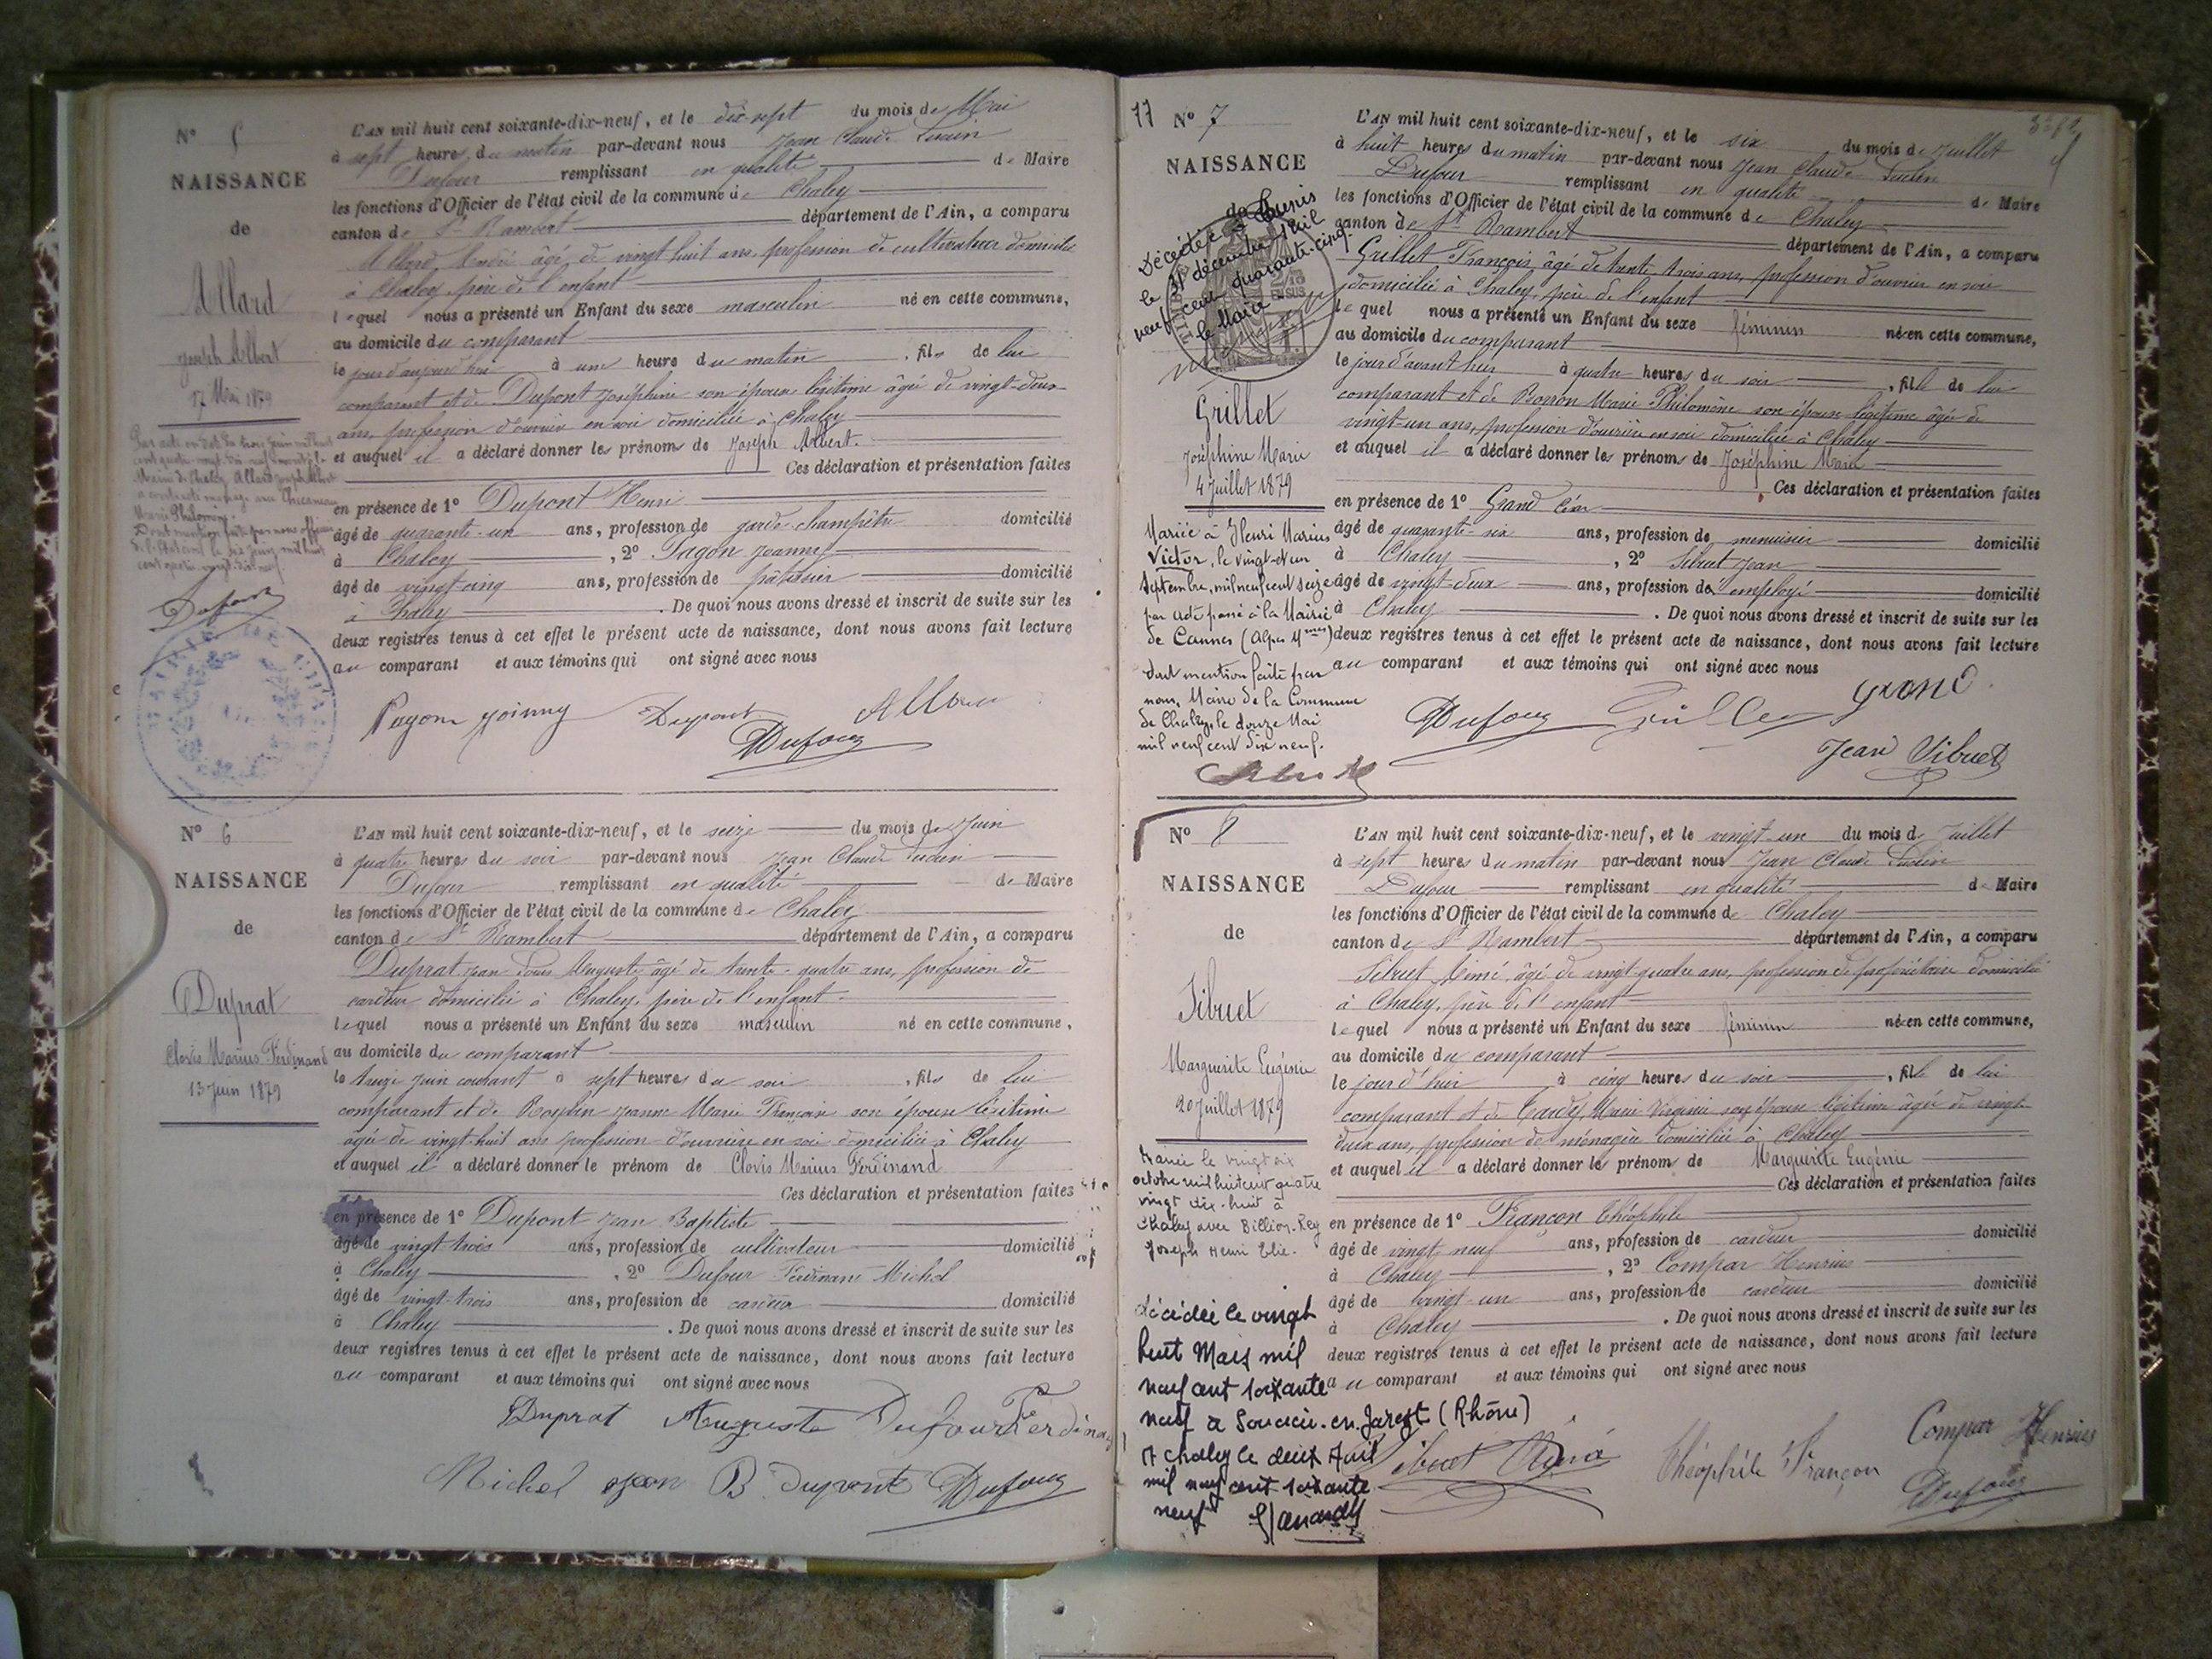 N° 5
NAISSANCE
de
Allard
Joseph Albert
17 Mai 1879
L'AN mil huit cent soixante-dix-neuf, et le dix-sept du mois de Mai
à sept heures du matin par-devant nous Jean Claude Lucien
Dufour remplissant en qualité de Maire
les fonctions d'Officier de l'état civil de la commune de Chaley
canton de St Rambert département de l'Ain, a comparu
Allard André âgé de vingt huit ans, profession de cultivateur domicilié
à Chaley, père de l'enfant
lequel nous a présenté un Enfant du sexe masculin né en cette commune,
au domicile du comparant
le jour d'aujourd'hui à une heure du matin, fils de lui
comparant et de Dupont Joséphine son épouse légitime âgée de vingt-deux
ans, profession d'ouvrière en soie domiciliée à Chaley
et auquel il a déclaré donner les prénoms de Joseph Albert.
Ces déclaration et présentation faites
en présence de 1° Dupont Henri
âgé de quarante-un ans, profession de garde-champêtre domicilié
à Chaley, 2° Pagon Joanny
âgé de vingt-cinq ans, profession de pâtissier domicilié
à Chaley. De quoi nous avons dressé et inscrit de suite sur les
deux registres tenus à cet effet le présent acte de naissance, dont nous avons fait lecture
au comparant et aux témoins qui ont signé avec nous
Dufour
Pagon Joanny Dupont Allard
Dufour
N° 6
NAISSANCE
de
Duprat
Clovis Marius Ferdinand
13 Juin 1879
L'AN mil huit cent soixante-dix-neuf, et le seize du mois de Juin
à quatre heures du soir par-devant nous Jean Claude Lucien
Dufour remplissant en qualité de Maire
les fonctions d'Officier de l'état civil de la commune de Chaley
canton de St Rambert département de l'Ain, a comparu
Duprat Jean Louis Auguste âgé de trente-quatre ans, profession de
cardeur domicilié à Chaley, père de l'enfant.
lequel nous a présenté un Enfant du sexe masculin né en cette commune,
au domicile du comparant
le treize juin courant à sept heures du soir, fils de lui
comparant et de Jeanne Marie Françoise son épouse légitime
âgée de vingt-huit ans profession d'ouvrière en soie domiciliée à Chaley
et auquel il a déclaré donner le prénom de Clovis Marius Ferdinand
Ces déclaration et présentation faites
en présence de 1° Dupont Jean Baptiste
âgé de vingt trois ans, profession de cultivateur domicilié
à Chaley, 2° Dufour Ferdinand Michel
âgé de vingt-trois ans, profession de cardeur domicilié
à Chaley. De quoi nous avons dressé et inscrit de suite sur les
deux registres tenus à cet effet le présent acte de naissance, dont nous avons fait lecture
au comparant et aux témoins qui ont signé avec nous
Duprat Auguste Dufour Ferdinand
Michel Jean B. Dupont Dufour
N° 7
NAISSANCE
de
Décédée à Tunis
le 31 décembre mil
neuf cent quarante-cinq.
le Maire
Grillet
Joséphine Marie
4 Juillet 1879
Mariée à Henri Marius
Victor, le vingt-et-un
Septembre, mil neuf cent seize
par acte passé à la Mairie
de Cannes (Alpes Mmes)
dont mention faite par
nous, Maire de la Commune
de Chaley, le douze Mai
mil neuf cent dix neuf.
L'AN mil huit cent soixante-dix-neuf, et le six du mois de Juillet
à huit heures du matin par-devant nous Jean Claude Lucien
Dufour remplissant en qualité de Maire
les fonctions d'Officier de l'état civil de la commune de Chaley
canton de St Rambert département de l'Ain, a comparu
Grillet François âgé de trente trois ans, profession d'ouvrier en soie
domicilié à Chaley, père de l'enfant
lequel nous a présenté un Enfant du sexe féminin née en cette commune,
au domicile du comparant
le jour d'avant hier à quatre heures du soir, fille de lui
comparant et de Marie Philomène son épouse légitime âgée de
vingt-un ans, profession d'ouvrière en soie domiciliée à Chaley
et auquel il a déclaré donner les prénoms de Joséphine Marie
Ces déclaration et présentation faites
en présence de 1° Grand César
âgé de quarante-six ans, profession de menuisier domicilié
à Chaley, 2° Sibuet Jean
âgé de vingt-deux ans, profession de employé domicilié
à Chaley. De quoi nous avons dressé et inscrit de suite sur les
deux registres tenus à cet effet le présent acte de naissance, dont nous avons fait lecture
au comparant et aux témoins qui ont signé avec nous
Dufour Grillet Grand
Jean Sibuet
N° 8
NAISSANCE
de
Sibuet
Marguerite Eugénie
20 Juillet 1879
Mariée le vingt six
octobre mil huit cent quatre
vingt dix-huit à
Chaley avec Billion-Rey
Joseph Henri Elie.
décédée le vingt
huit Mars mil
neuf cent soixante
neuf à Soucieu-en-Jarest (Rhône)
A Chaley le deux Avril
mil neuf cent soixante
neuf
L'AN mil huit cent soixante-dix-neuf, et le vingt-un du mois de Juillet
à sept heures du matin par-devant nous Jean Claude Lucien
Dufour remplissant en qualité de Maire
les fonctions d'Officier de l'état civil de la commune de Chaley
canton de St Rambert département de l'Ain, a comparu
Sibuet Aimé âgé de vingt-quatre ans, profession de propriétaire domicilié
à Chaley, père de l'enfant
lequel nous a présenté un Enfant du sexe féminin née en cette commune,
au domicile du comparant
le jour d'hier à cinq heures du soir, fille de lui
comparant et de Marie Virginie son épouse légitime âgée de vingt-
deux ans, profession de ménagère domiciliée à Chaley
et auquel il a déclaré donner les prénoms de Marguerite Eugénie
Ces déclaration et présentation faites
en présence de 1° Françon Théophile
âgé de vingt neuf ans, profession de cardeur domicilié
à Chaley, 2° Compar Hensius
âgé de vingt-un ans, profession de cardeur domicilié
à Chaley. De quoi nous avons dressé et inscrit de suite sur les
deux registres tenus à cet effet le présent acte de naissance, dont nous avons fait lecture
au comparant et aux témoins qui ont signé avec nous
Sibuet Aimé Théophile Françon Compar Hensius
Dufour